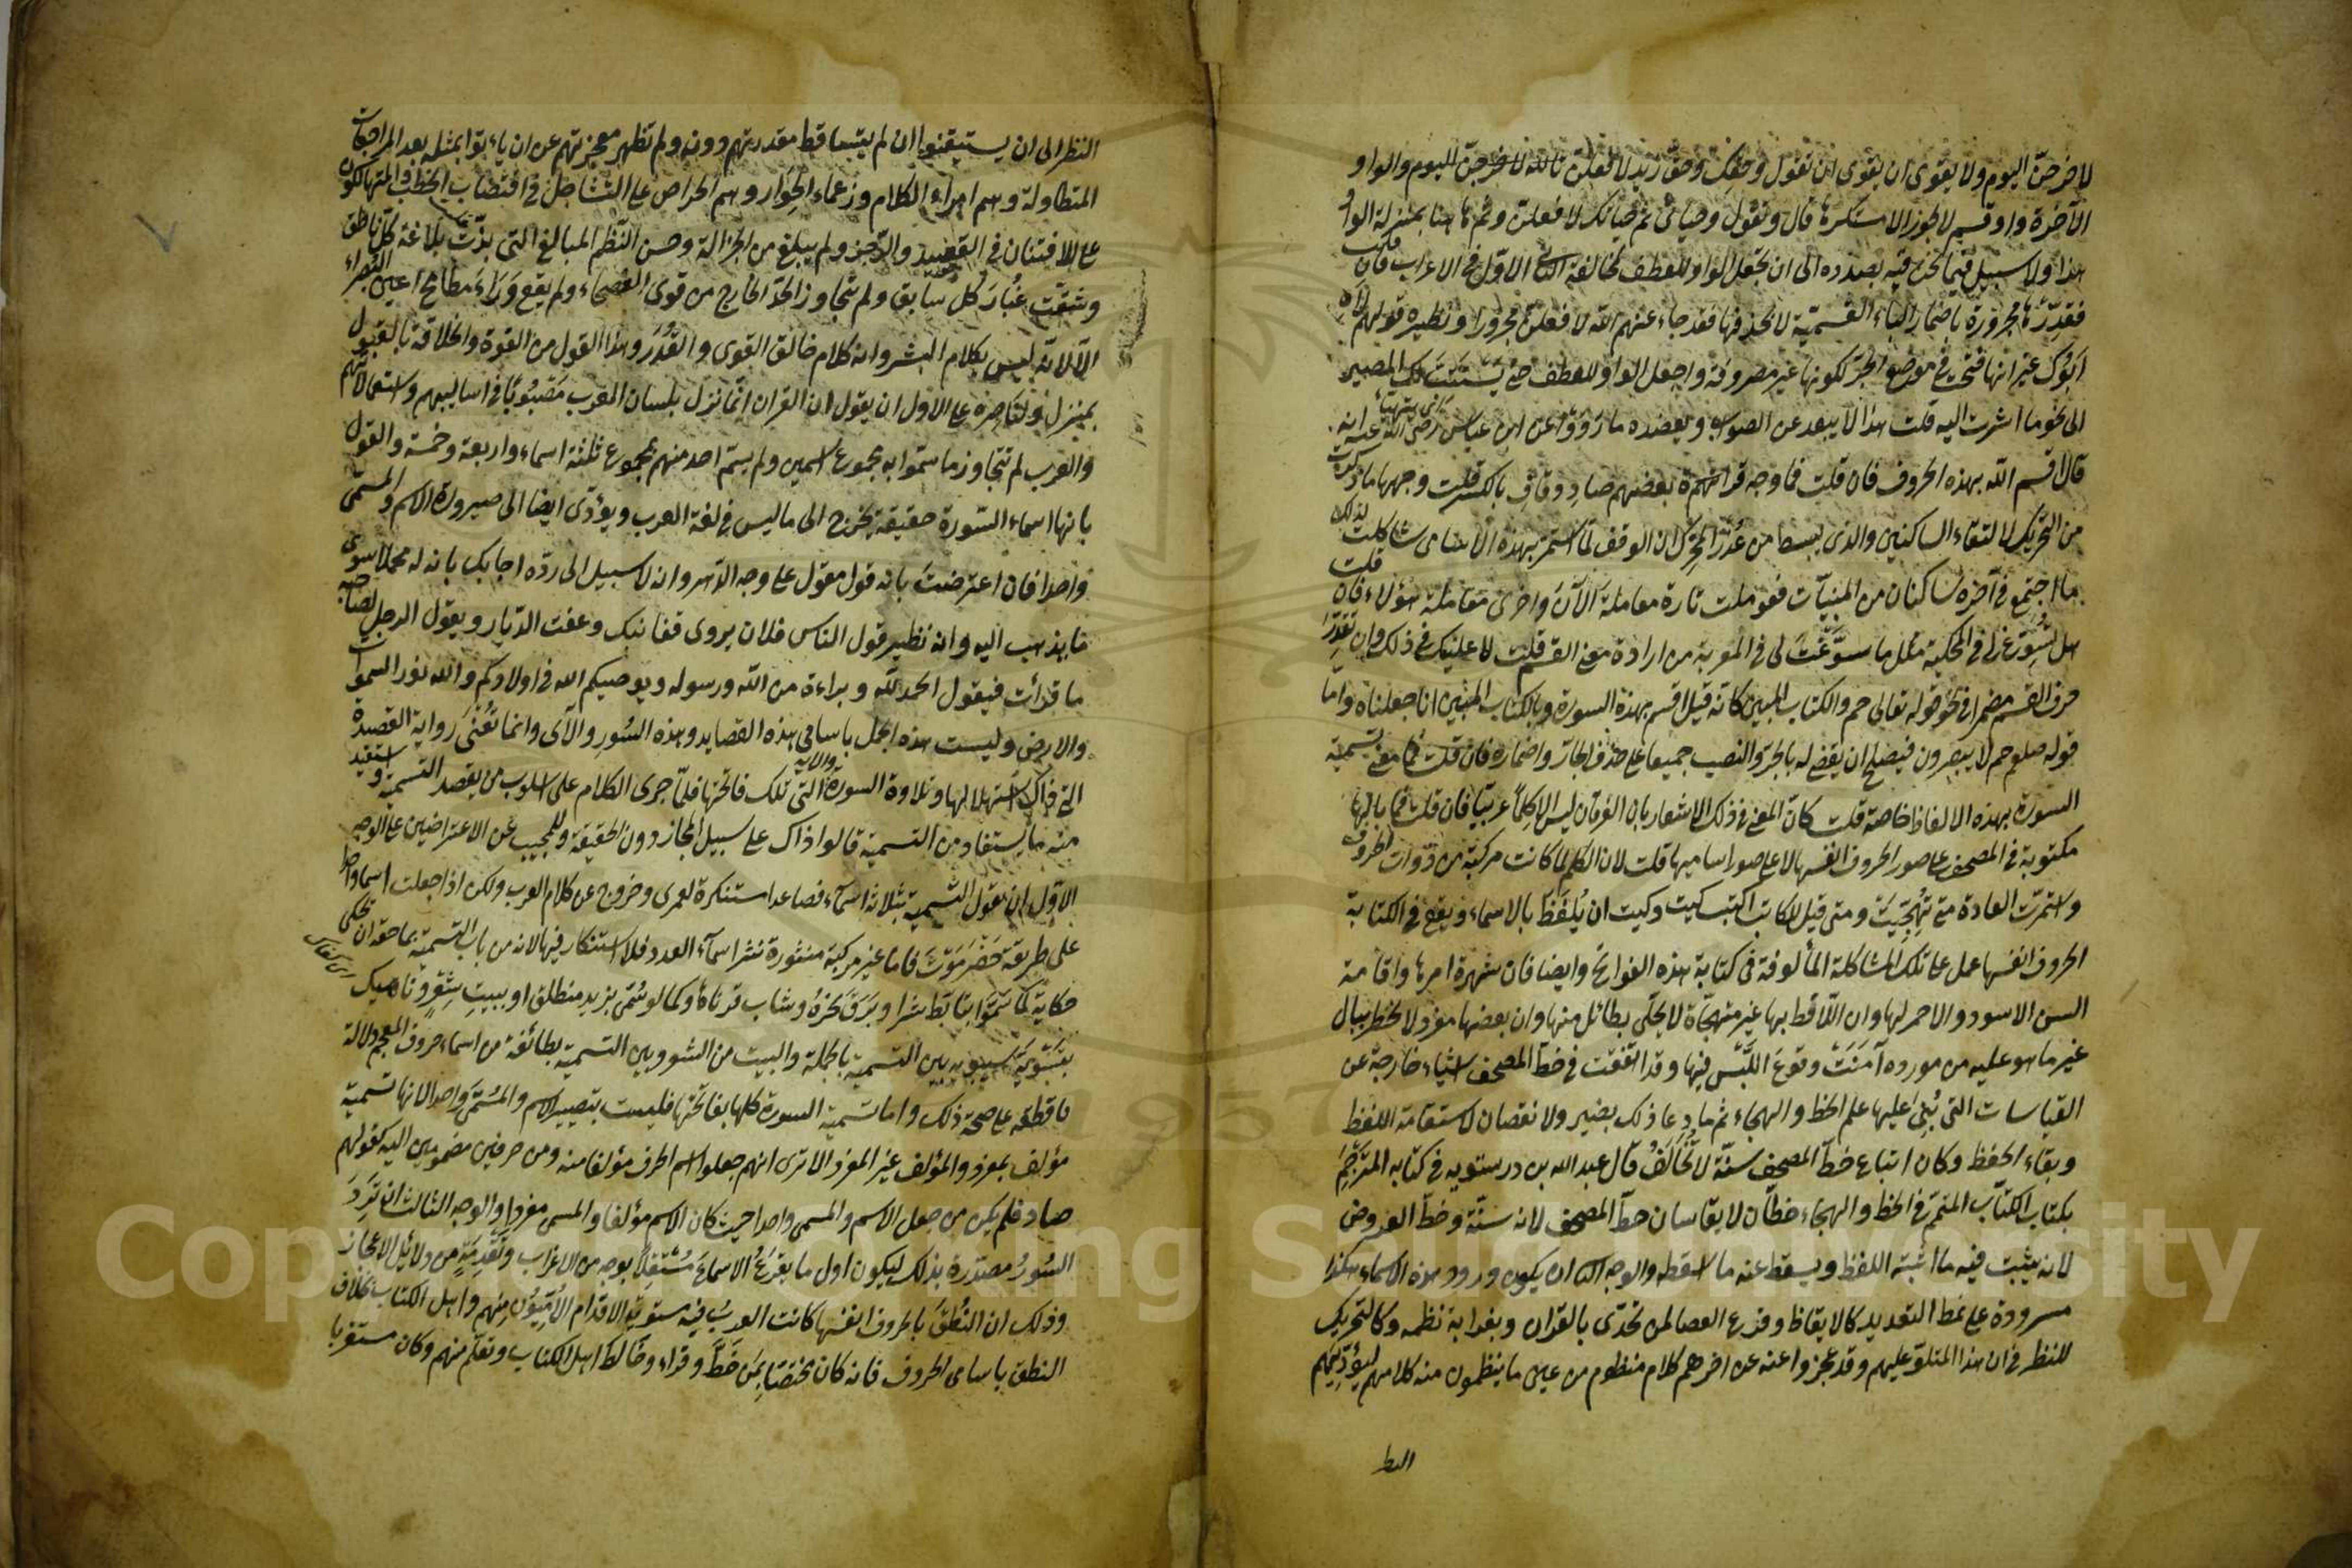 لاخرجنّ اليوم ولا يقوى ان يقوى ان تقول وحقك وحق زيد لافعلن تالله لاخرجنّ اليوم والواو
الآخرة واو قسم لا يجوز الا مستكرها قال وتقول وحياتى ثم حياتك لافعلن وثم هاهنا بمنزلة الواو
هذا ولا سبيل فيما نحن فيه بصدده الى ان تجعل الواو للعطف لمخالفة الثانى الاول فى الاعراب فان قلت
فقدّرها مجرورة باضمار الباء القسمية لا بحذفها فقد جاء عنهم الله لافعلن مجرورا ونظيره قولهم لاه
ابوك غير انها فتحت فى موضع الجر لكونها غير مصروفة واجعل الواو للعطف حتى يستتب لك المصير
الى نحو ما اشرت اليه قلت هذا لا يبعد عن الصواب ويعضده ما رووا عن ابن عباس رضى الله عنه انه
قال اقسم الله بهذه الحروف فان قلت فما وجه قراءة بعضهم صاد وقاف بالكسر قلت وجهها ما ذكرت
من التحريك لالتقاء الساكنين والذى يبسط من عذر المحرك ان الوقف لما استمر بهذه الاسامى شاكلت لذلك
ما اجتمع فى آخره ساكنان من المبنيات فعوملت تارة معاملة الآن واخرى معاملة هؤلاء فان قلت
هل تسوّغ لى فى المحكية مثل ما سوّغت لى فى المعربة من ارادة معنى القسم قلت لا عليك فى ذلك وان تقدّر
حرف القسم مضمرا فى نحو قوله تعالى حم والكتاب المبين كانه قيل اقسم بهذه السورة وبالكتاب المبين انا جعلناه واما
قوله صلعم حم لا يبصرون فيصلح ان يقضى له بالجر والنصب جميعا على حذف الجار واضماره فان قلت فما معنى تسمية
السورة بهذه الالفاظ خاصة قلت كان المعنى فى ذلك الاشعار بان الفرقان ليس الا كلما عربية فان قلت فما بالها
مكتوبة فى المصحف على صور الحروف انفسها لا على صور اساميها قلت لان الكلم لما كانت مركبة من ذوات الحروف
واستمرت العادة متى تهجيت ومتى قيل للكاتب اكتب كيت وكيت ان يلفظ بالاسماء ويقع فى الكتابة
الحروف انفسها عمل على تلك المشاكلة المألوفة فى كتابة هذه الفواتح وايضا فان شهرة امرها واقامة
السن الاسود والاحمر لها وان اللافظ بها غير متهجاة لا يحلى بطائل منها وان بعضها مفرد لا يخطر ببال
غير ما هو عليه من مورده آمنت وقوع اللبس فيها وقد اتفقت فى خط المصحف اشياء خارجة عن
القياسات التى بنى عليها علم الخط والهجاء ثم ما عاد ذلك بضير ولا نقصان لاستقامة اللفظ
وبقاء الحفظ وكان اتباع خط المصحف سنّة لا تخالف قال عبد الله بن درستويه فى كتابه المترجم
بكتاب الكتّاب المتمم فى الخط والهجاء خطان لا يقاسان خط المصحف لانه سنّة وخط العروض
لانه يثبت فيه ما اثبته اللفظ ويسقط عنه ما اسقطه والوجه الثانى ان يكون ورود هذه الاسماء هكذا
مسرودة على نمط التعديد كالايقاظ وقرع العصا لمن تحدّى بالقران وبغرابة نظمه وكالتحريك
للنظر فى ان هذا المتلوّ عليهم وقد عجزوا عنه عن آخرهم كلام منظوم من عين ما ينظمون منه كلامهم ليؤديهم
النظر
النظر الى ان يستيقنوا ان لم يتساقط مقدرتهم دونه ولم تظهر معجزتهم عن ان ياتوا بمثله بعد المراجعات
المتطاولة وهم امراء الكلام وزعماء الحوار وهم الحراص على التساجل فى اقتضاب الخطب والمتهالكون
على الافتنان فى القصيد والرجز ولم يبلغ من الجزالة وحسن النظم المبالغ التى بذّت بلاغة كل ناطق
وشقت غبار كل سابق ولم تتجاوز الحد الخارج من قوى الفصحاء ولم يقع وراء مطامح اعين البصراء
الا لانه ليس بكلام البشر وانه كلام خالق القوى والقدر وهذا القول من القوة والخلاقة بالقبول
بمنزل ولناصره على الاول ان يقول ان القران انما نزل بلسان العرب مصبوبا فى اساليبهم واستعمالاتهم
والعرب لم تتجاوز ما سموا به مجموع اسمين ولم يسم احد منهم بمجموع ثلثة اسماء واربعة وخمسة والقول
بانها اسماء السورة حقيقة يخرج الى ما ليس فى لغة العرب ويؤدى ايضا الى صيرورة الاسم والمسمى
واحدا فان اعترضت بانه قول مقول على وجه الدهر وانه لا سبيل الى رده اجابك بانه له محملا سوى
ما يذهب اليه وانه نظير قول الناس فلان يروى قفا نبك وعفت الديار ويقول الرجل لصاحبه
ما قرأت فيقول الحمد لله وبراءة من الله ورسوله ويوصيكم الله فى اولادكم والله نور السموات
والارض وليست هذه الجمل باسامى هذه القصايد وهذه السور والآى وانما تعنى رواية القصيدة
التى ذاك استهلالها وتلاوة السورة والاية التى تلك فاتحتها فلما جرى الكلام على اسلوب من يقصد التسمية واستفيد
منه ما يستفاد من التسمية قالوا ذاك على سبيل المجاز دون الحقيقة وللمجيب عن الاعتراضين على الوجه
الاول ان يقول التسمية بثلاثة اسماء فصاعدا مستنكرة لعمرى وخروج عن كلام العرب ولكن اذا جعلت اسما واحدا
على طريقة حضرموت فاما غير مركبة منثورة نثر اسماء العدد فلا استنكار فيها لانه من باب التسمية بما حقه ان يحكى
حكاية كما سموا بتأبط شرا وبرق نحره وشاب قرناها وكما لو سمى بزيد منطلق او ببيت شعر وناهيك
بتسوية سيبويه بين التسمية بالجملة والبيت من الشعر وبين التسمية بطائفة من اسماء حروف المعجم دلالة
قاطعة على صحة ذلك واما تسمية السورة كلها بفاتحتها فليست بتصيير الاسم والمسمى واحدا لانها تسمية
مؤلف بمفرد والمؤلف غير المفرد الا ترى انهم جعلوا اسم الحرف مؤلفا منه ومن حرفين مضمومين اليه كقولهم
صاد فلم يكن من جعل الاسم والمسمى واحدا حيث كان الاسم مؤلفا والمسمى مفردا والوجه الثالث ان ترد
السور مصدّرة بذلك ليكون اول ما يقرع الاسماع مستقلا بوجه من الاغراب وتقدمة من دلائل الاعجاز
وذلك ان النطق بالحروف انفسها كانت العرب فيه مستوية الاقدام الاميّون منهم واهل الكتاب بخلاف
النطق باسامى الحروف فانه كان مختصا بمن خطّ وقرأ وخالط اهل الكتاب وتعلم منهم وكان مستغربا
Copyright © King Saud University
1957